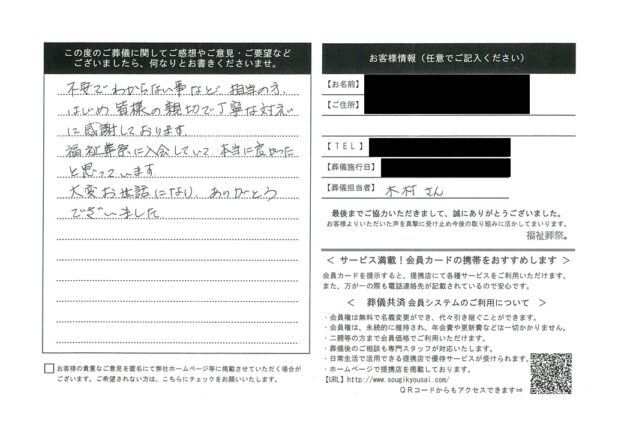 この度のご葬儀に関してご感想やご意見・ご要望など
ございましたら、何なりとお書きくださいませ。
不安でわからない事など、担当の方、
はじめ 皆様の親切で丁寧な対応
に感謝しております。
福祉葬祭に入会していて、本当に良かった
と思っています。
大変お世話になり、ありがとう
ございました
お客様の貴重なご意見を匿名にて弊社ホームページ等に掲載させていただく場合が
ございます。ご希望されない方は、こちらにチェックをお願いいたします。
お客様情報（任意でご記入ください）
【お名前】
【ご住所】
【ＴＥＬ】
【葬儀施行日】
【葬儀担当者】 木村 さん
最後までご協力いただきまして、誠にありがとうございました。
お客様よりいただいた声を真摯に受け止め今後の取り組みに活かしてまいります。
福祉葬祭。
＜ サービス満載！会員カードの携帯をおすすめします ＞
会員カードを提示すると、提携店にて各種サービスをご利用いただけます。
また、万が一の際も電話連絡先が記載されているので安心です。
＜ 葬儀共済 会員システムのご利用について ＞
・会員権は無料で名義変更ができ、代々引き継ぐことができます。
・会員権は、永続的に維持され、年会費や更新費などは一切かかりません。
・二親等の方まで会員価格でご利用いただけます。
・葬儀後のご相談も専門スタッフが対応いたします。
・日常生活で活用できる提携店で優待サービスが受けられます。
・ホームページで提携店を掲載しております。
【URL】http://www.sougikyousai.com/
ＱＲコードからもアクセスできます⇒